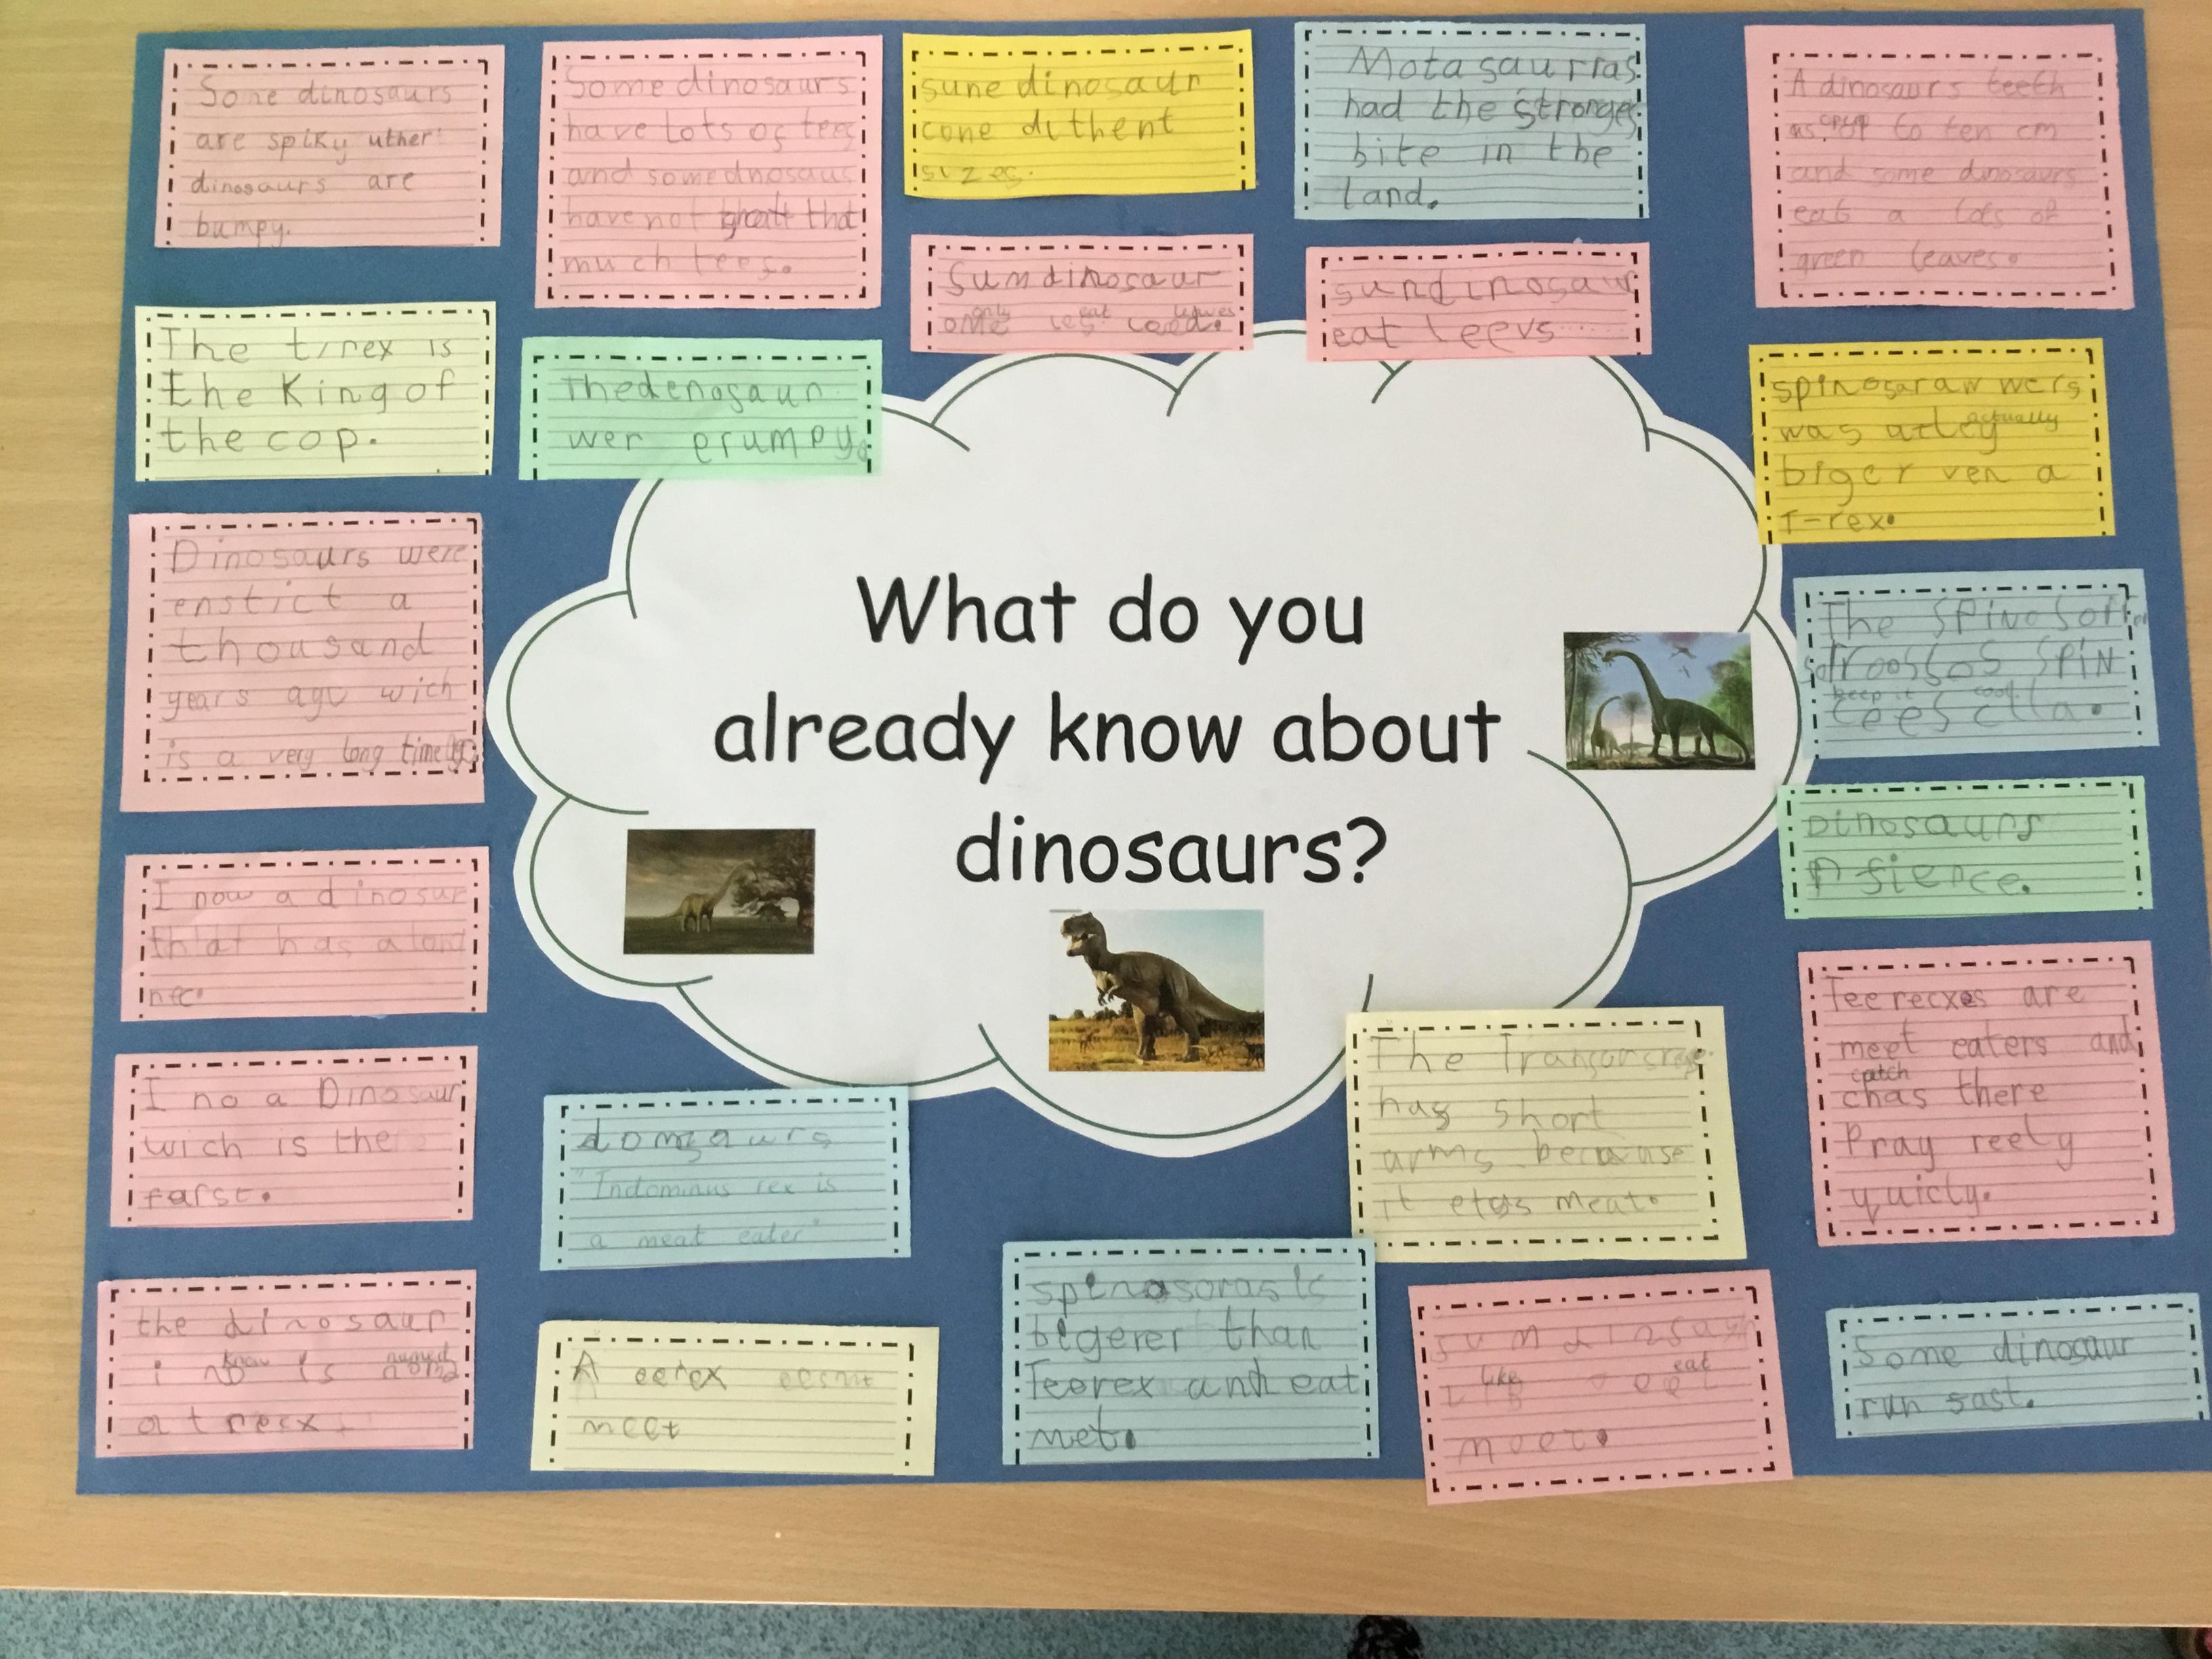 Some dinosaurs
are spiky uther
dinosaurs are
bumpy.
Some dinosaurs
have lots os tees
and some dnosaus
have not that
much tees.
sune dinosaur
cone dithent
sizes.
Motasaurras
had the stronges
bite in the
land.
A dinosaurs teeth
to ten cm
and some dinosaurs
eat a lots of
green leaves.
Sum dinosaur
only eat leaves
sundinosaur
eat leevs
The t/rex is
the King of
the cop.
Thedenosaur
wer erumpy.
spinosaraw wers
was actually
biger ven a
T-rex.
Dinosaurs were
enstict a
thousand
years ago wich
is a very long time
What do you
already know about
dinosaurs?
The
SPiN
keep it cool
Dinosaurs
fience.
I now a dinosur
that has a long
nec.
I no a Dinosaur
wich is the
farst.
domsaurs
"Indominus rex is
a meat eater"
The
has short
arms because
it meat.
Teerecxes are
meet eaters and
catch
chas there
Pray reely
quicly.
the dinosaur
know named
i no is
a t recx
A eerex
meet
spinosoras is
bigerer than
Teerex and eat
met.
sum
like eat
meet.
Some dinosaur
run sast.